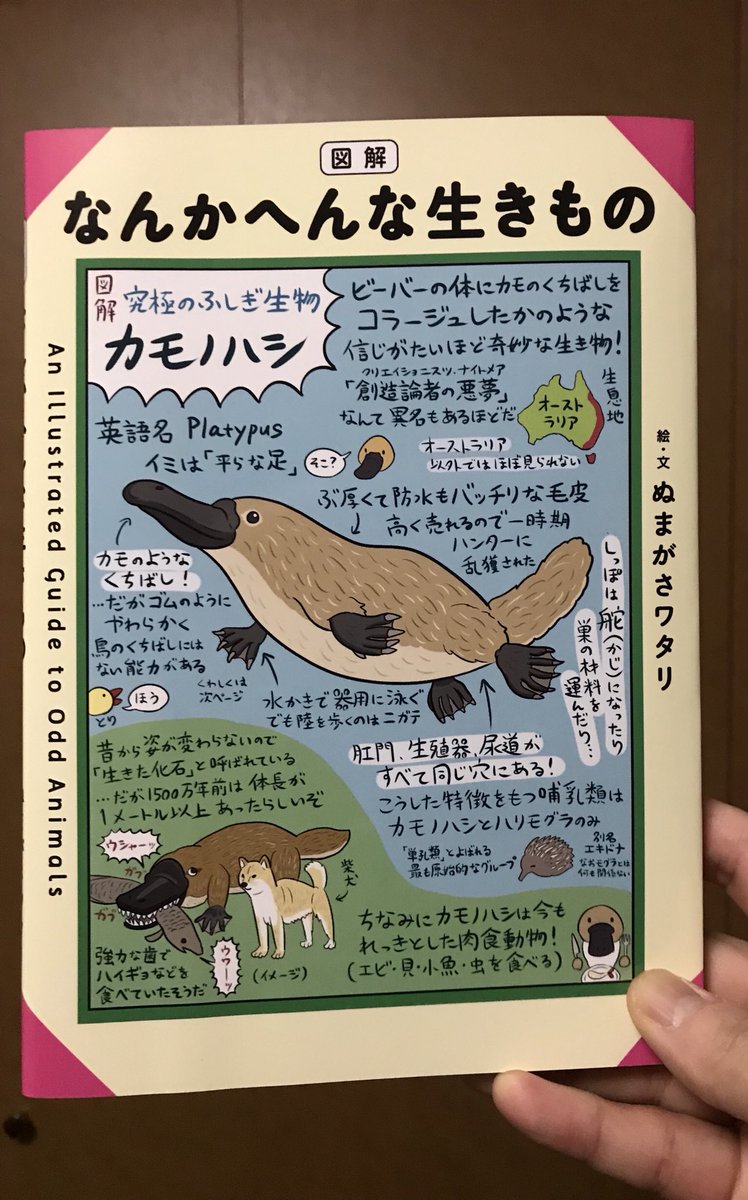 図解
なんかへんな生きもの
An Illustrated Guide to Odd Animals
絵・文 ぬまがさワタリ
図解
究極のふしぎ生物
カモノハシ
ビーバーの体にカモのくちばしを
コラージュしたかのような
信じがたいほど奇妙な生き物!
クリエイショニスツ・ナイトメア
「創造論者の悪夢」
なんて異名もあるほどだ
生息地
オースト
ラリア
オーストラリア
以外ではほぼ見られない
英語名 Platypus
イミは「平らな足」
そこ?
ぶ厚くて防水もバッチリな毛皮
高く売れるので一時期
ハンターに
乱獲された
カモのような
くちばし!
…だがゴムのように
やわらかく
鳥のくちばしには
ない能力がある
くわしくは
次ページ
ほう
とり
水かきで器用に泳ぐ
でも陸を歩くのはニガテ
しっぽは舵(かじ)になったり
巣の材料を
運んだり…
肛門、生殖器、尿道が
すべて同じ穴にある!
こうした特徴をもつ哺乳類は
カモノハシとハリモグラのみ
「単孔類」とよばれる
最も原始的なグループ
別名
エキドナ
なおモグラとは
何も関係ない
昔から姿が変わらないので
「生きた化石」と呼ばれている
…だが1500万年前は体長が
1メートル以上あったらしいぞ
ウシャーッ
ガブ
ガブ
柴犬
ウワーッ
(イメージ)
強力な歯で
ハイギョなどを
食べていたそうだ
ちなみにカモノハシは今も
れっきとした肉食動物!
(エビ・貝・小魚・虫を食べる)